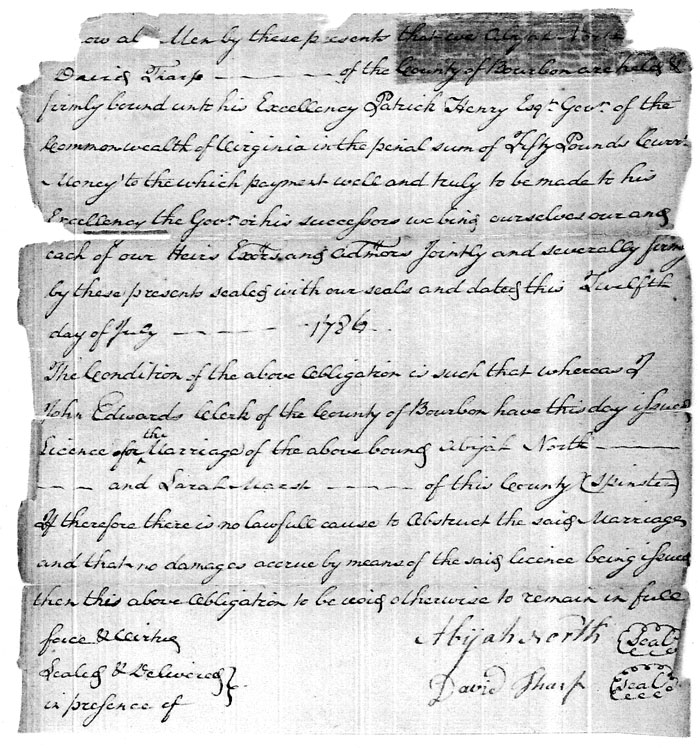 ow al Men by these presents that we Abijah North
David Tharp — — — — of the County of Bourbon are held &
firmly bound unto his Excellency Patrick Henry Esqr. Govr. of the
Commonwealth of Virginia in the penal sum of Fifty Pounds Currt.
Money to the which payment well and truly to be made to his
Excellency the Govr. or his successors we bind ourselves our and
each of our Heirs Exors. and Admors Jointly and severally firmly
by these presents sealed with our seals and dated this Twelfth
day of July — — — 1786
The Condition of the above Obligation is such that whereas I
John Edwards Clerk of the County of Bourbon have this day issued
Licence for the Marriage of the above bound Abijah North —
— — and Sarah — — — of this County (Spinster)
If therefore there is no lawfull cause to Obstruct the said Marriage
and that no damages accrue by means of the said licence being issued
then this above Obligation to be void otherwise to remain in full
force & Virtue
Sealed & Delivered }
in presence of
Abijah North (Seal)
David Tharp (Seal)